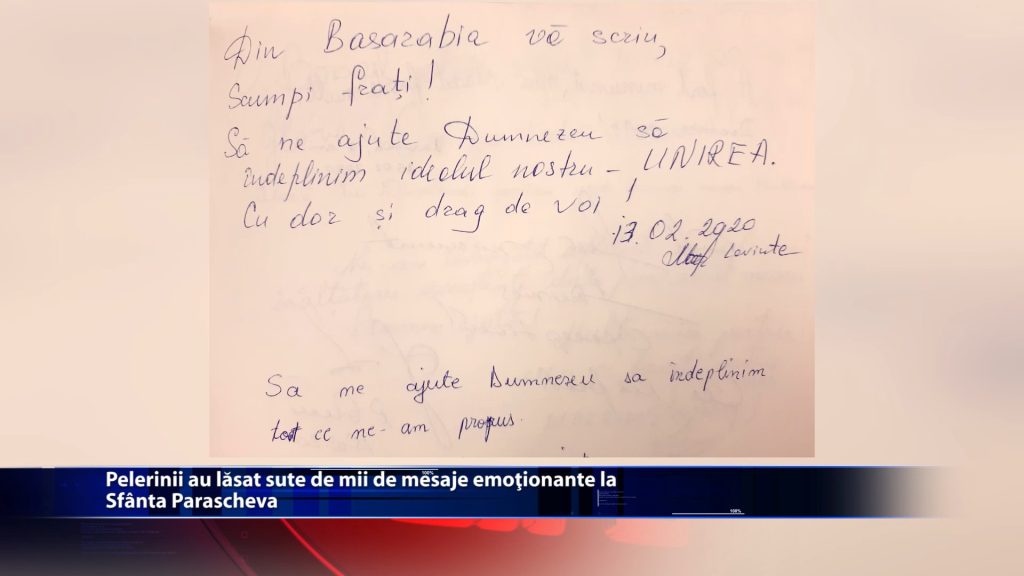 Din Basarabia vă scriu,
Scumpi frați!
Să ne ajute Dumnezeu să
îndeplinim idealul nostru - UNIREA.
Cu dor și drag de voi!
13.02.2020
Sa ne ajute Dumnezeu sa îndeplinim
tot ce ne-am propus.
Pelerinii au lăsat sute de mii de mesaje emoţionante la
Sfânta Parascheva
100%
100%